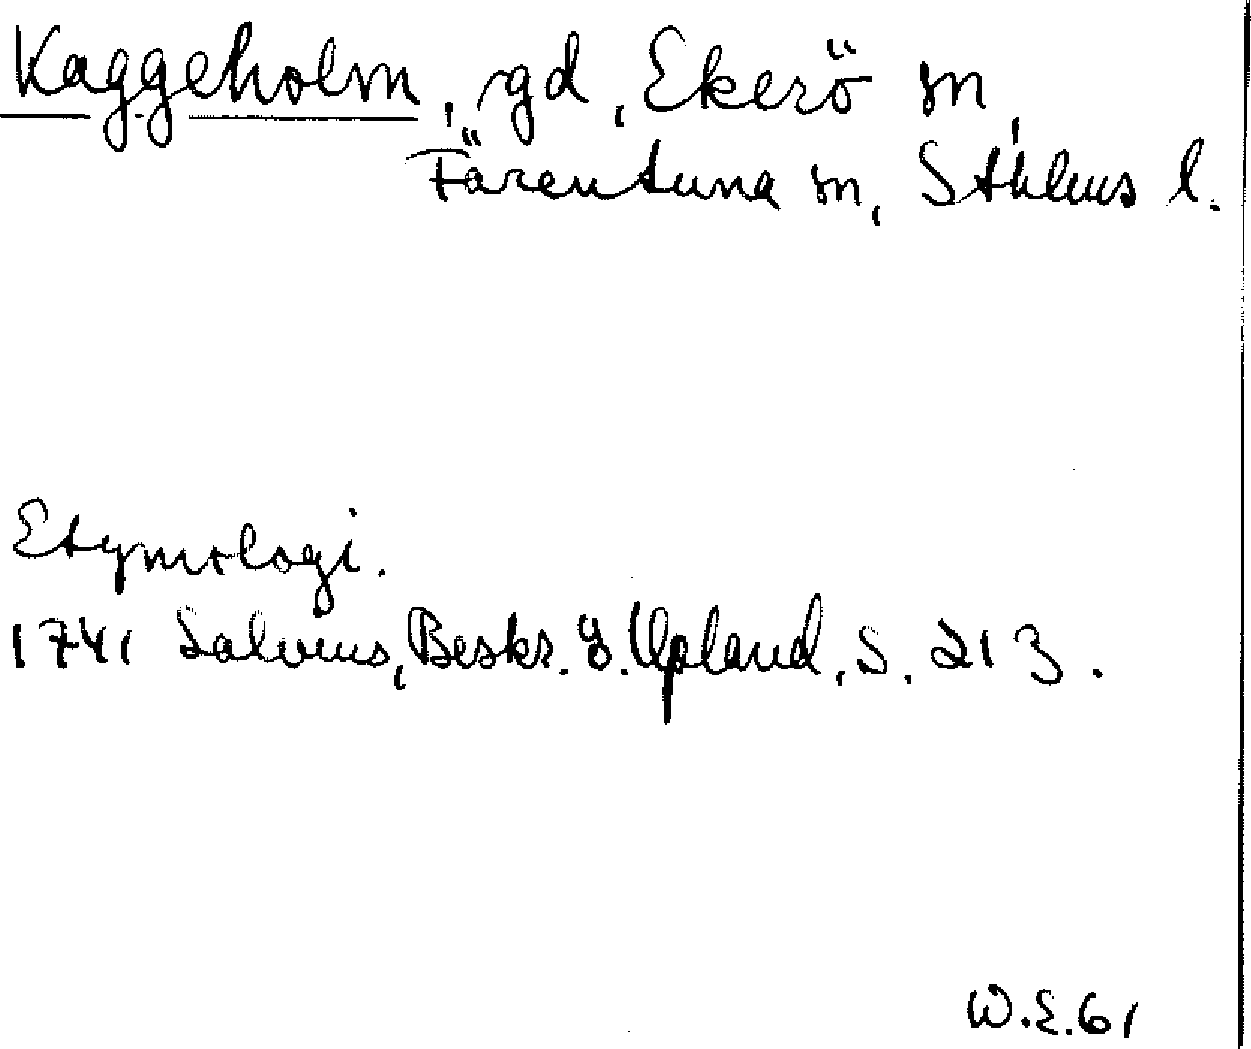 Kaggeholm, gd, Ekerö sn,
Färentuna sn, Sthlms l.
Etymologi.
1741 Salvius, Beskr. ö. Upland, S. 213.
W.E. 61